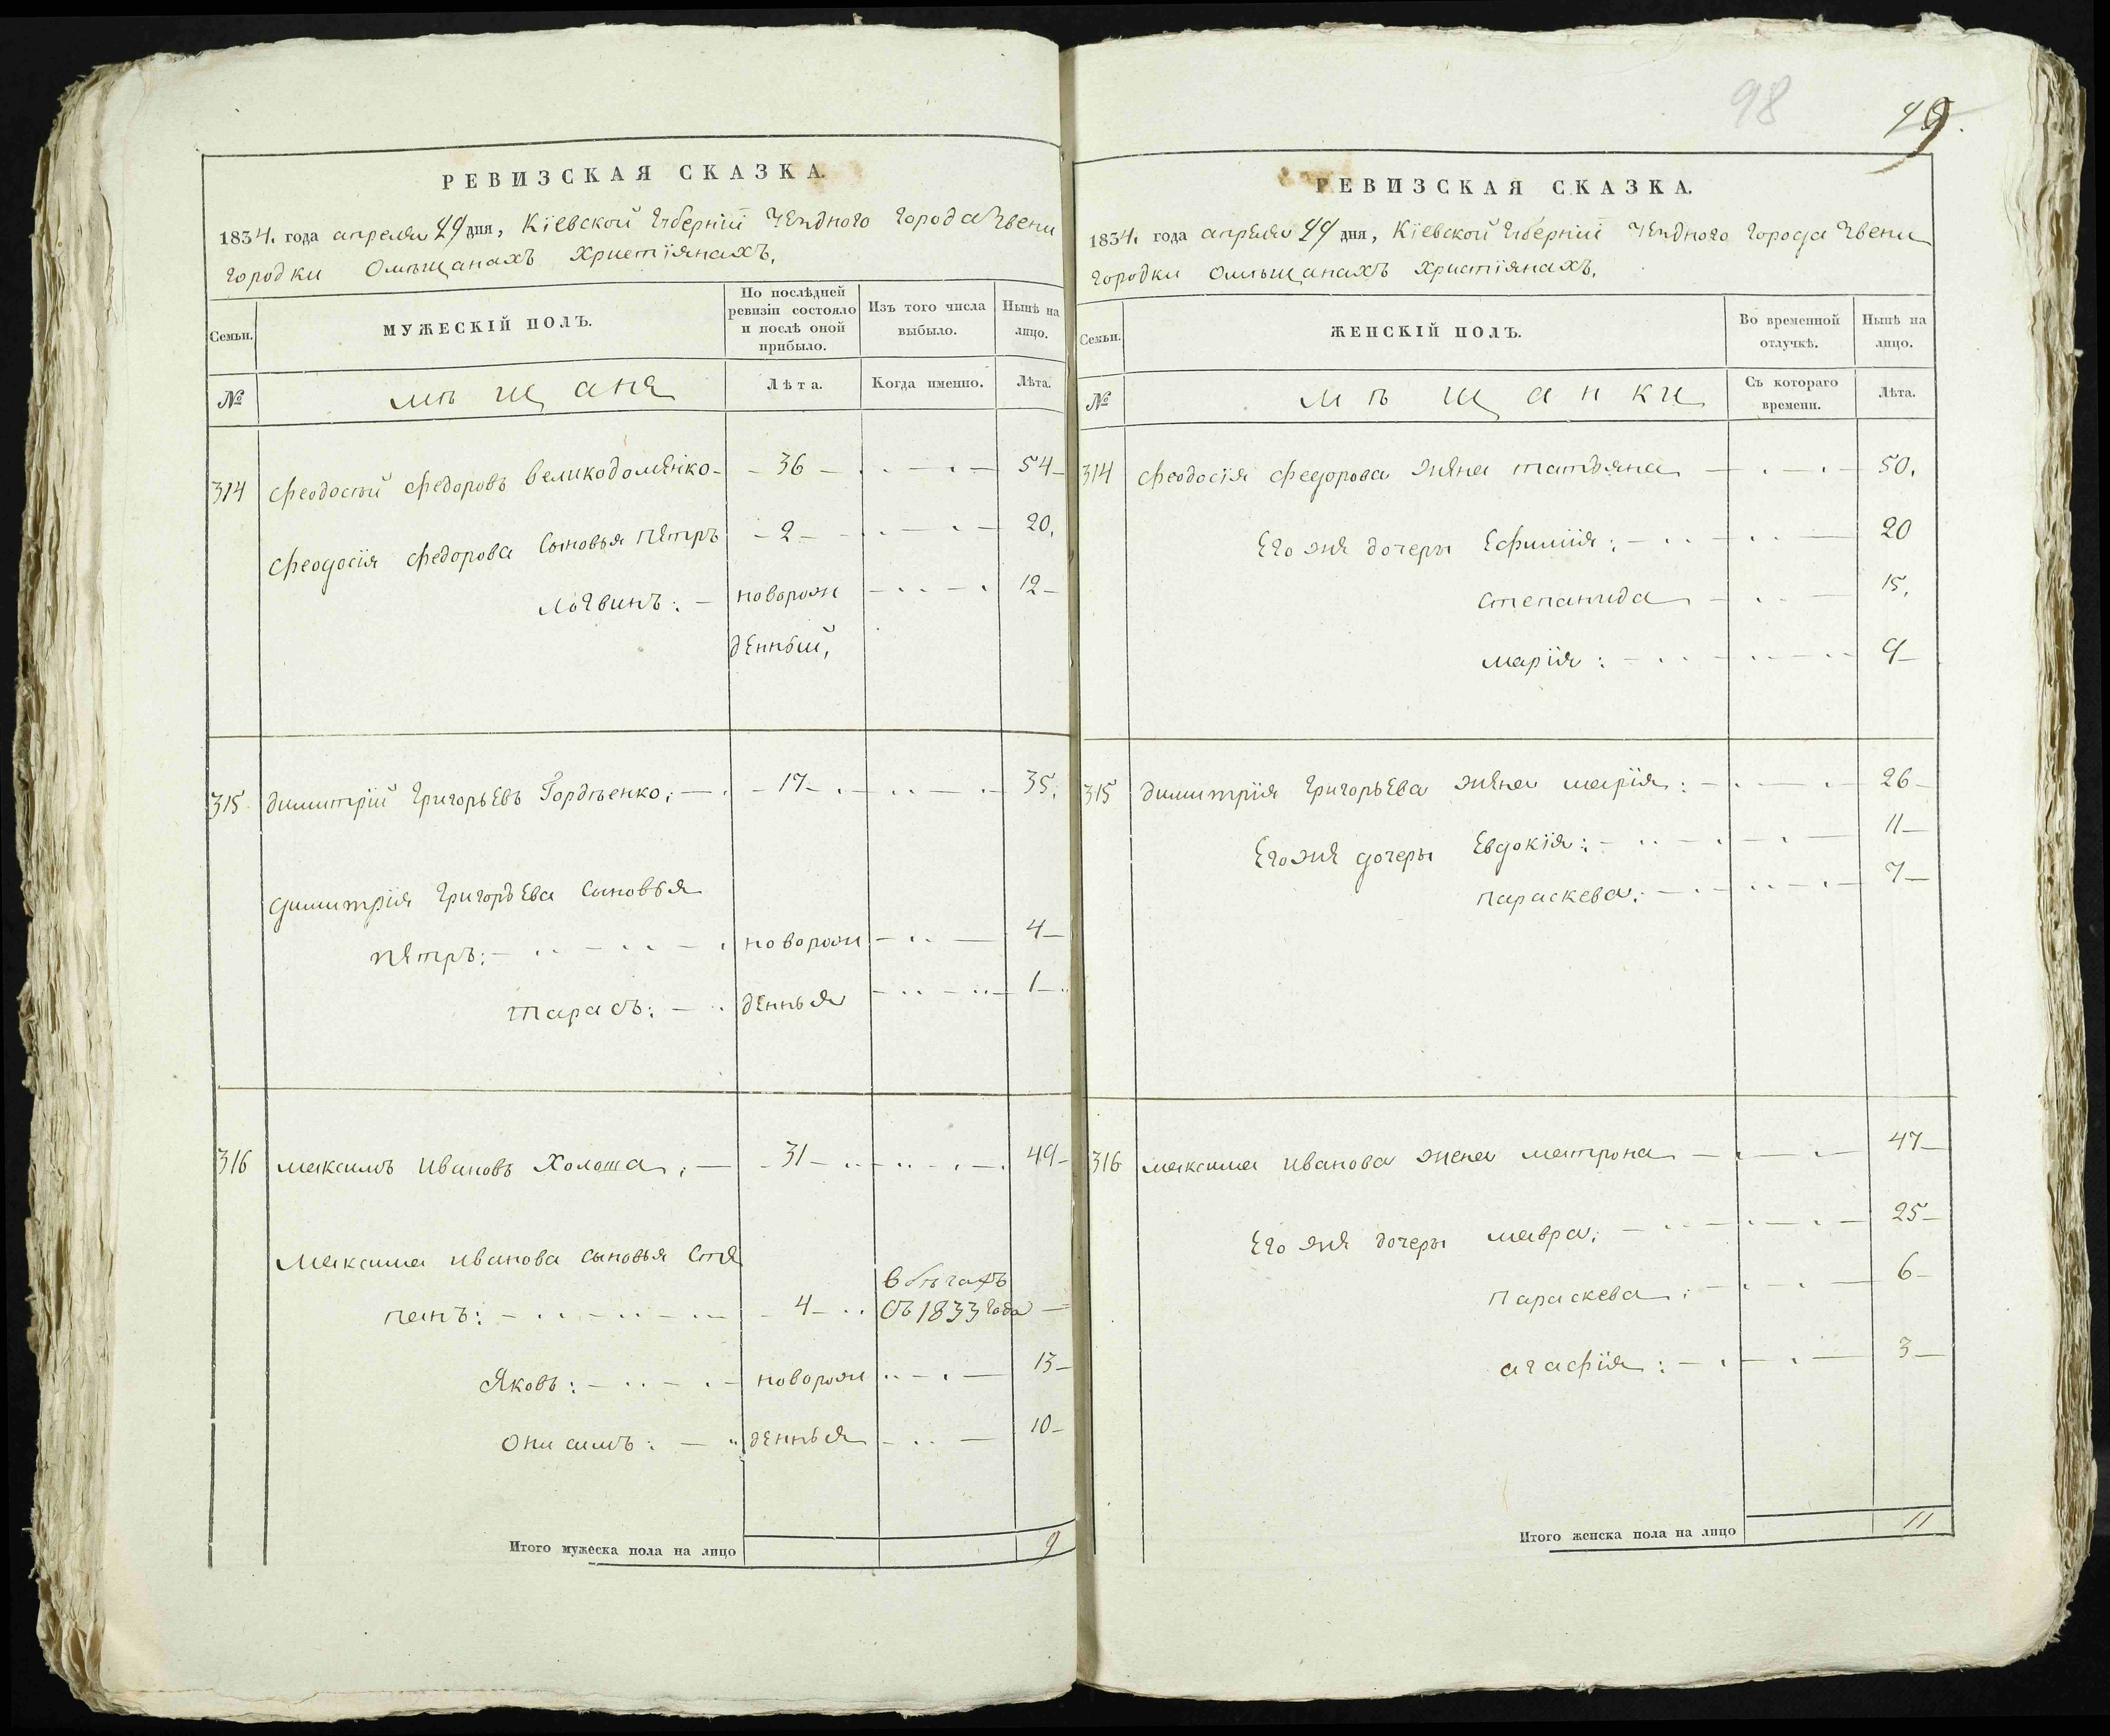 РЕВИЗСКАЯ СКАЗКА.
1834. года апреля 29 дня, Кіевской Губерніи Уезднаго города Звени
городки Омѣщанахъ Христіянахъ,
Семьи. МУЖЕСКІЙ ПОЛЪ. По послѣдней ревизіи состояло и послѣ оной прибыло. Изъ того числа выбыло. Нынѣ на лицо.
№ мѣщане Лѣта. Когда именно. Лѣта.
314 Феодосій Федоровъ Великодоменко 36 54
Феодосія Федорова Сыновья Петръ 2 20.
Логвинъ: новорож 12
денный,
315 Димитрій Григорьевъ Гордѣенко: 17 35.
Димитрія Григорьева Сыновья
Петръ: новорож 4
Тарасъ: денные 1
316 Максимъ Ивановъ Холоша: 31 49
Максима Иванова сыновья Сте
панъ: 4 в бѣгахъ съ 1833 года
Яковъ: новорож 13
Онисимъ: денные 10
Итого мужеска пола на лицо 9
98
РЕВИЗСКАЯ СКАЗКА.
1834. года апреля 29 дня, Кіевской Губерніи Уезднаго города Звени
городки Омѣщанахъ Христіянахъ,
Семьи. ЖЕНСКІЙ ПОЛЪ. Во временной отлучкѣ. Нынѣ на лицо.
№ мѣщанки Съ котораго времени. Лѣта.
314 Феодосія Федорова Жена Татьяна 50.
Его же дочеры Ефимія: 20
Степанида 15.
Марія: 9
315 Димитрія Григорьева Жена Марія: 26
Его же дочеры Евдокія: 11
Параскева: 7
316 Максима Иванова жена Матрона 47
Его же дочеры Мавра: 25
Параскева: 6
Агафія: 3
Итого женска пола на лицо 11